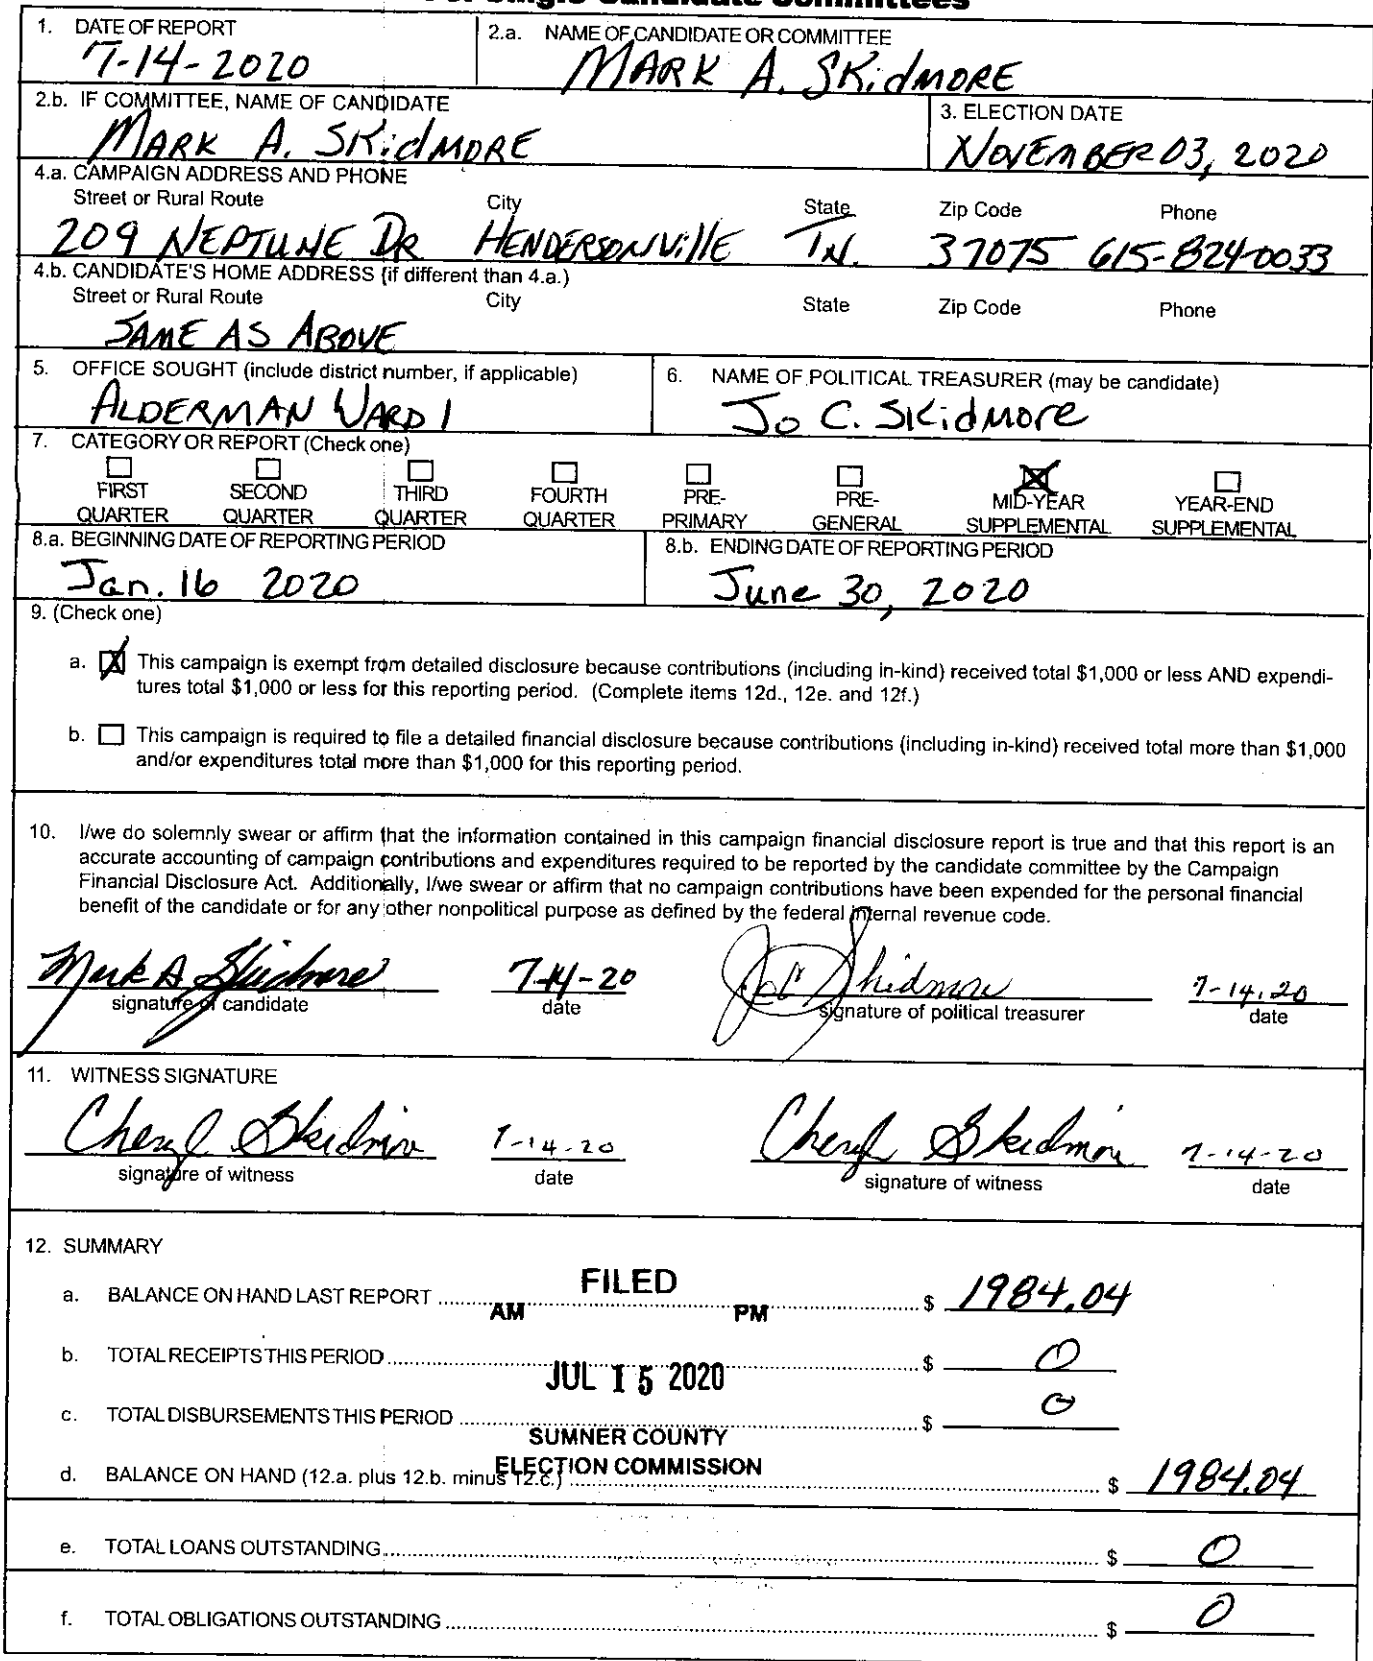 For Single Candidate Committees
1. DATE OF REPORT
7-14-2020
2.a. NAME OF CANDIDATE OR COMMITTEE
MARK A. SKidMORE
2.b. IF COMMITTEE, NAME OF CANDIDATE
MARK A. SKidMORE
3. ELECTION DATE
NOVEMBER 03, 2020
4.a. CAMPAIGN ADDRESS AND PHONE
Street or Rural Route City State Zip Code Phone
209 NEPTUNE DR HENDERSONVillE TN. 37075 615-824-0033
4.b. CANDIDATE'S HOME ADDRESS (if different than 4.a.)
Street or Rural Route City State Zip Code Phone
SAME AS ABOVE
5. OFFICE SOUGHT (include district number, if applicable)
ALDERMAN WARD 1
6. NAME OF POLITICAL TREASURER (may be candidate)
Jo C. SKidmore
7. CATEGORY OR REPORT (Check one)
FIRST QUARTER
SECOND QUARTER
THIRD QUARTER
FOURTH QUARTER
PRE-PRIMARY
PRE-GENERAL
X MID-YEAR SUPPLEMENTAL
YEAR-END SUPPLEMENTAL
8.a. BEGINNING DATE OF REPORTING PERIOD
Jan. 16 2020
8.b. ENDING DATE OF REPORTING PERIOD
June 30, 2020
9. (Check one)
a. X This campaign is exempt from detailed disclosure because contributions (including in-kind) received total $1,000 or less AND expendi-
tures total $1,000 or less for this reporting period. (Complete items 12d., 12e. and 12f.)
b. This campaign is required to file a detailed financial disclosure because contributions (including in-kind) received total more than $1,000
and/or expenditures total more than $1,000 for this reporting period.
10. I/we do solemnly swear or affirm that the information contained in this campaign financial disclosure report is true and that this report is an
accurate accounting of campaign contributions and expenditures required to be reported by the candidate committee by the Campaign
Financial Disclosure Act. Additionally, I/we swear or affirm that no campaign contributions have been expended for the personal financial
benefit of the candidate or for any other nonpolitical purpose as defined by the federal internal revenue code.
Mark A Skidmore 7-14-20 Jo C Skidmore 7-14-20
signature of candidate date signature of political treasurer date
11. WITNESS SIGNATURE
Cheryl Skidmore 7-14-20 Cheryl Skidmore 7-14-20
signature of witness date signature of witness date
12. SUMMARY
a. BALANCE ON HAND LAST REPORT $ 1984.04
FILED
AM PM
b. TOTAL RECEIPTS THIS PERIOD $ 0
JUL 15 2020
c. TOTAL DISBURSEMENTS THIS PERIOD $ 0
SUMNER COUNTY
ELECTION COMMISSION
d. BALANCE ON HAND (12.a. plus 12.b. minus 12.c.) $ 1984.04
e. TOTAL LOANS OUTSTANDING $ 0
f. TOTAL OBLIGATIONS OUTSTANDING $ 0